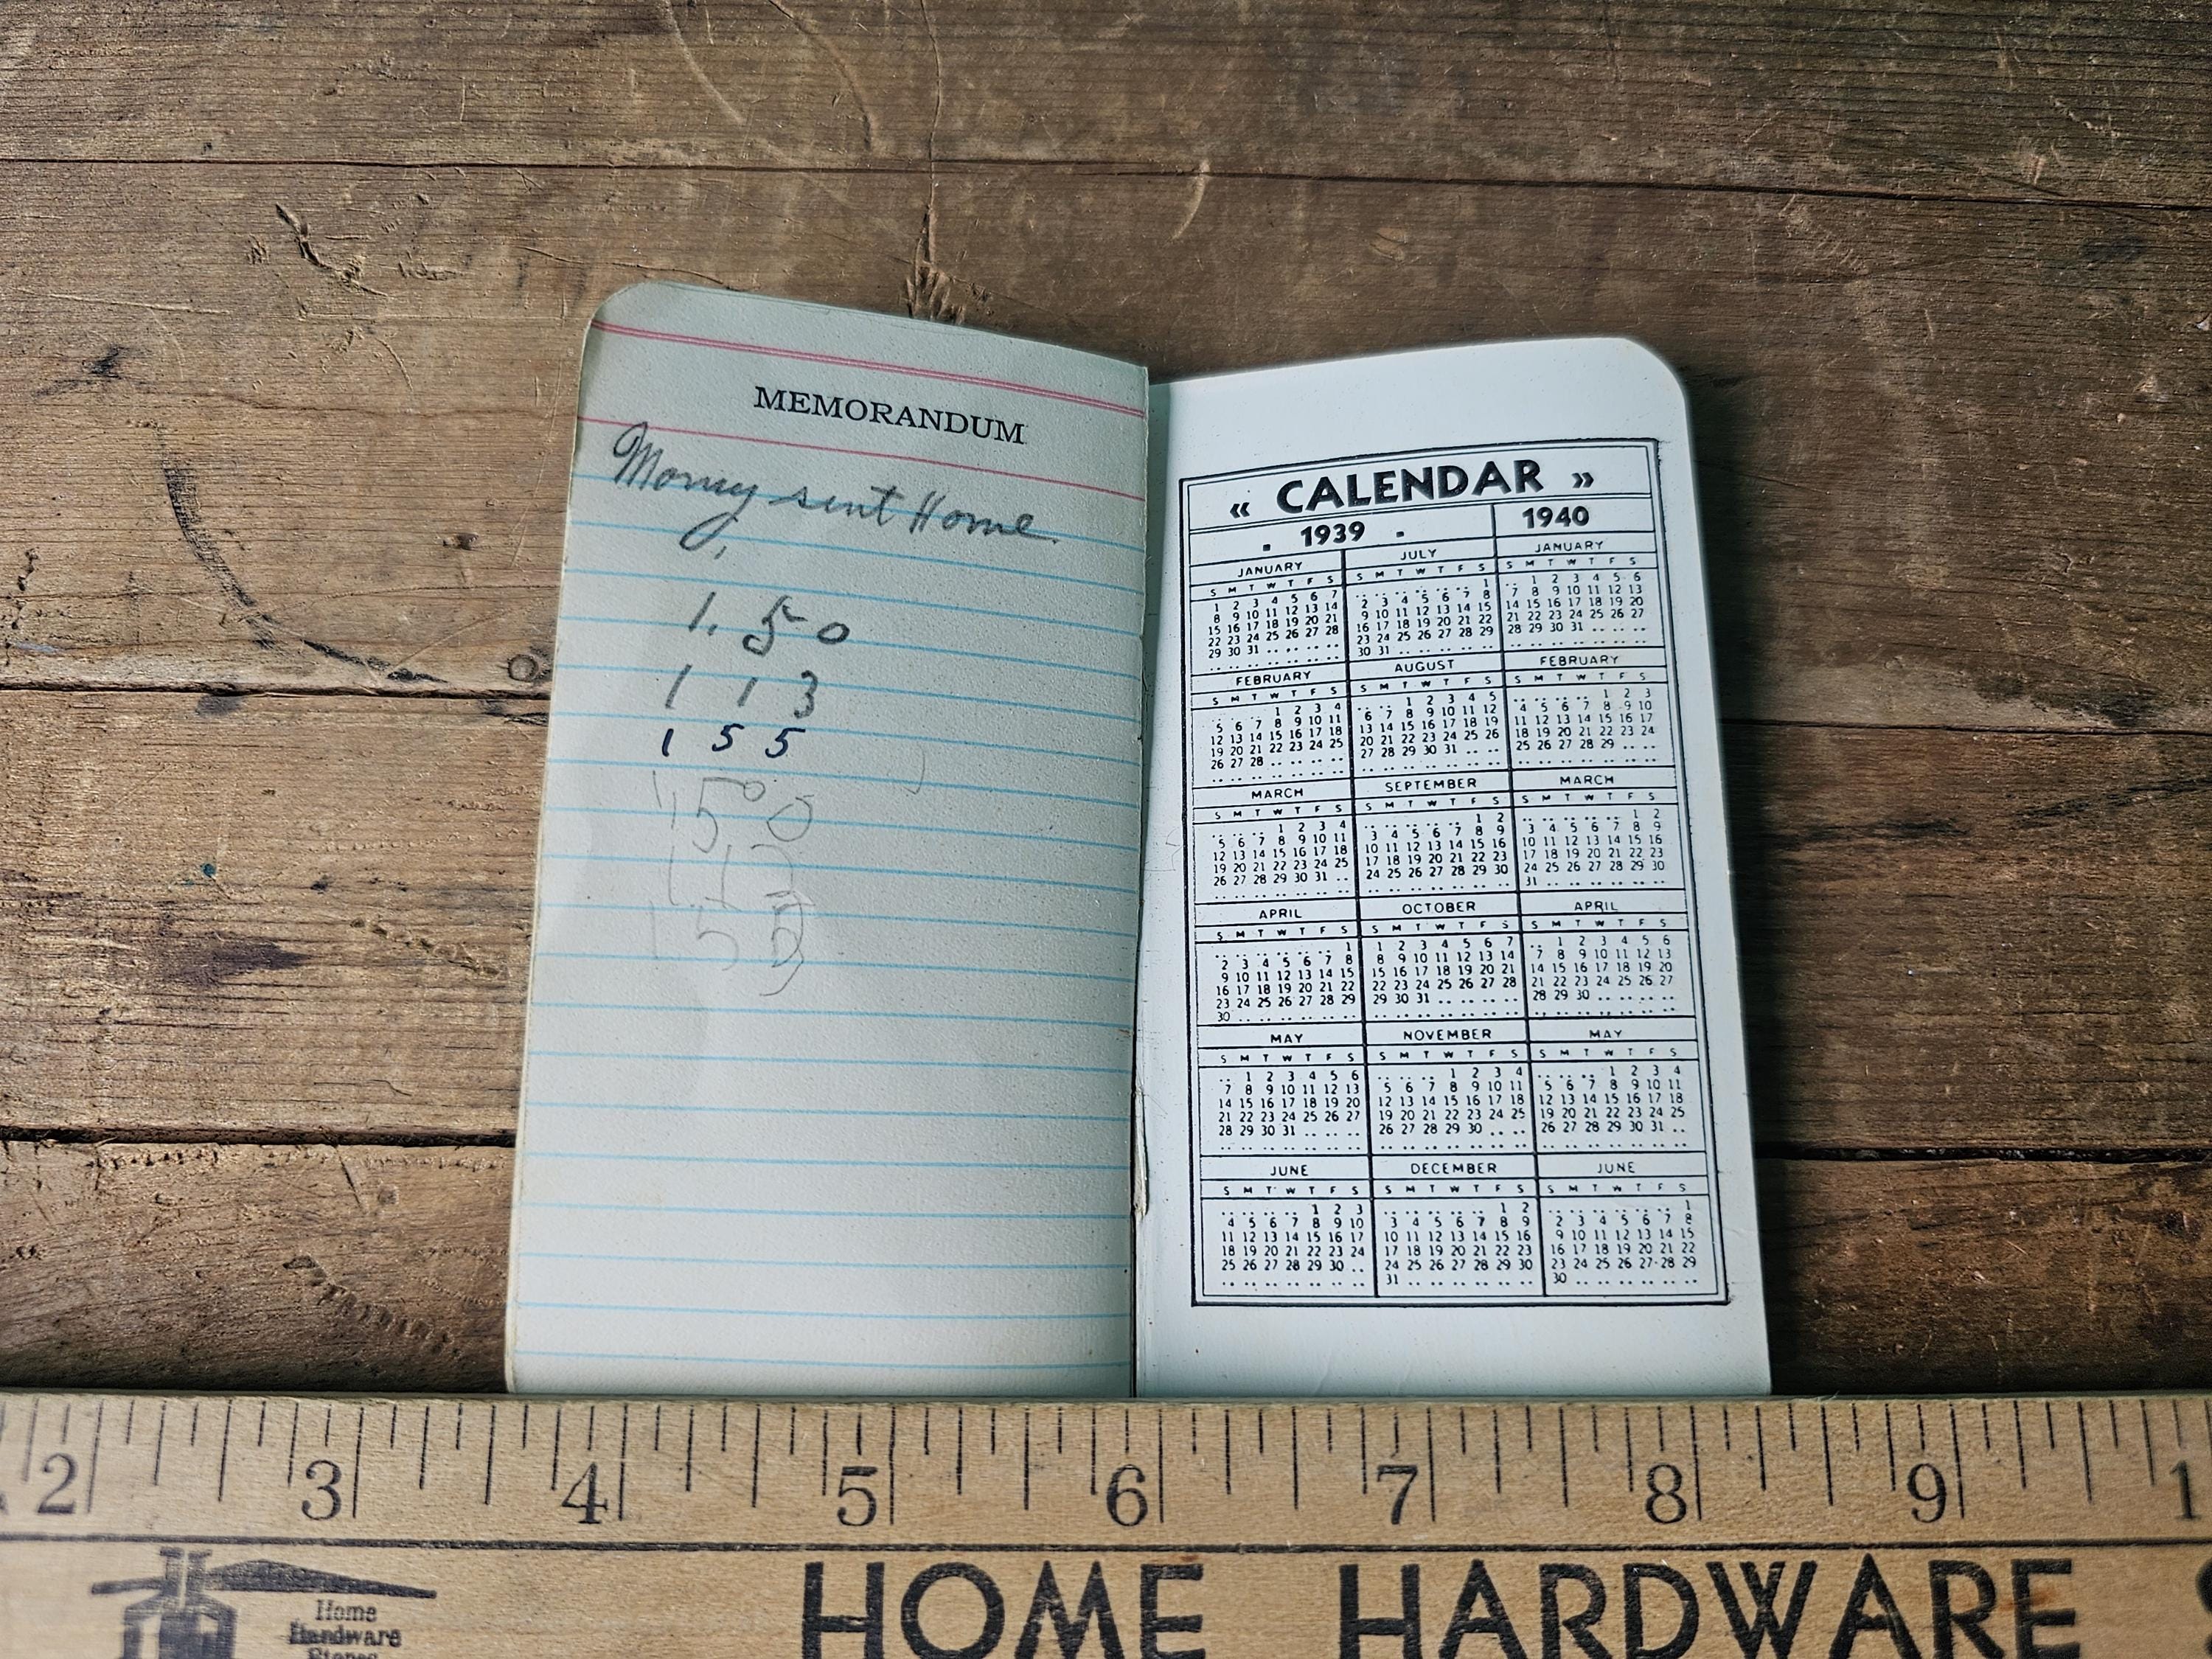 MEMORANDUM
Money sent Home.
1.50
1 13
1 55
1500
113
« CALENDAR »
1939
1940
JANUARY
S M T W T F S
1 2 3 4 5 6 7
8 9 10 11 12 13 14
15 16 17 18 19 20 21
22 23 24 25 26 27 28
29 30 31
FEBRUARY
S M T W T F S
1 2 3 4
5 6 7 8 9 10 11
12 13 14 15 16 17 18
19 20 21 22 23 24 25
26 27 28
MARCH
S M T W T F S
1 2 3 4
5 6 7 8 9 10 11
12 13 14 15 16 17 18
19 20 21 22 23 24 25
26 27 28 29 30 31
APRIL
S M T W T F S
1
2 3 4 5 6 7 8
9 10 11 12 13 14 15
16 17 18 19 20 21 22
23 24 25 26 27 28 29
30
MAY
S M T W T F S
1 2 3 4 5 6
7 8 9 10 11 12 13
14 15 16 17 18 19 20
21 22 23 24 25 26 27
28 29 30 31
JUNE
S M T W T F S
1 2 3
4 5 6 7 8 9 10
11 12 13 14 15 16 17
18 19 20 21 22 23 24
25 26 27 28 29 30
JULY
S M T W T F S
1
2 3 4 5 6 7 8
9 10 11 12 13 14 15
16 17 18 19 20 21 22
23 24 25 26 27 28 29
30 31
AUGUST
S M T W T F S
1 2 3 4 5
6 7 8 9 10 11 12
13 14 15 16 17 18 19
20 21 22 23 24 25 26
27 28 29 30 31
SEPTEMBER
S M T W T F S
1 2
3 4 5 6 7 8 9
10 11 12 13 14 15 16
17 18 19 20 21 22 23
24 25 26 27 28 29 30
OCTOBER
S M T W T F S
1 2 3 4 5 6 7
8 9 10 11 12 13 14
15 16 17 18 19 20 21
22 23 24 25 26 27 28
29 30 31
NOVEMBER
S M T W T F S
1 2 3 4
5 6 7 8 9 10 11
12 13 14 15 16 17 18
19 20 21 22 23 24 25
26 27 28 29 30
DECEMBER
S M T W T F S
1 2
3 4 5 6 7 8 9
10 11 12 13 14 15 16
17 18 19 20 21 22 23
24 25 26 27 28 29 30
31
JANUARY
S M T W T F S
1 2 3 4 5 6
7 8 9 10 11 12 13
14 15 16 17 18 19 20
21 22 23 24 25 26 27
28 29 30 31
FEBRUARY
S M T W T F S
1 2 3
4 5 6 7 8 9 10
11 12 13 14 15 16 17
18 19 20 21 22 23 24
25 26 27 28 29
MARCH
S M T W T F S
1 2
3 4 5 6 7 8 9
10 11 12 13 14 15 16
17 18 19 20 21 22 23
24 25 26 27 28 29 30
31
APRIL
S M T W T F S
1 2 3 4 5 6
7 8 9 10 11 12 13
14 15 16 17 18 19 20
21 22 23 24 25 26 27
28 29 30
MAY
S M T W T F S
1 2 3 4
5 6 7 8 9 10 11
12 13 14 15 16 17 18
19 20 21 22 23 24 25
26 27 28 29 30 31
JUNE
S M T W T F S
1
2 3 4 5 6 7 8
9 10 11 12 13 14 15
16 17 18 19 20 21 22
23 24 25 26 27 28 29
30
2 3 4 5 6 7 8 9 1
Home
Hardware
Stores
HOME HARDWARE